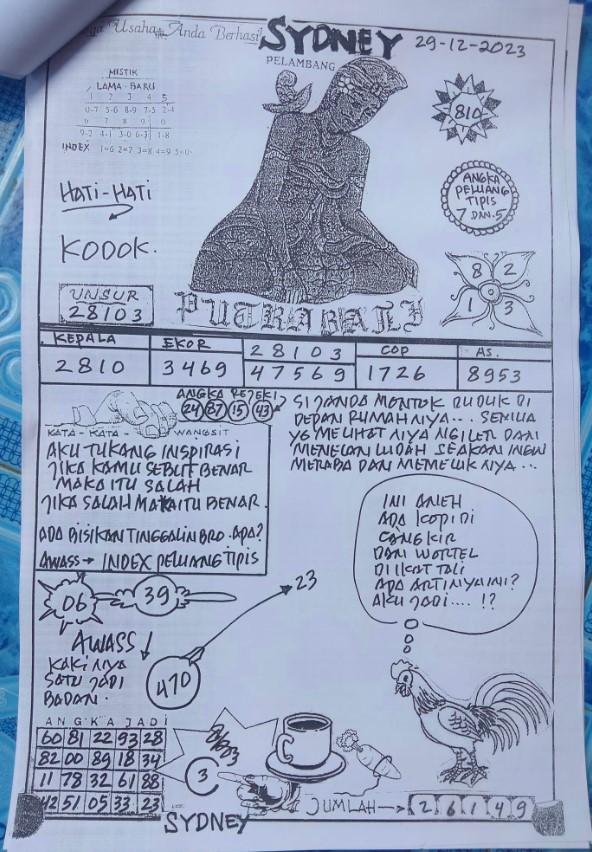 Usaha Anda Berhasil
SYDNEY
29-12-2023
PELAMBANG
MISTIK
LAMA - BARU
1 2 3 4 5
0-7 5-6 8-9 7-5 2-4
6 7 8 9 0
9-2 4-1 3-0 6-3 1-8
INDEX 1=6 2=7 3=8 4=9 5=0
810
ANGKA
PELUANG
TIPIS
7 DAN 5
HATI-HATI
KODOK.
8 2
1 3
UNSUR
28103
PUTRA BALI
KEPALA EKOR 28103 COP AS.
2810 3469 47569 1726 8953
ANGKA REJEKI
24 87 15 43
KATA - KATA - WANGSIT
AKU TUKANG INSPIRASI
JIKA KAMU SEBUT BENAR
MAKA ITU SALAH
JIKA SALAH MAKA ITU BENAR.
ADA BISIKAN TINGGALIN BRO. APA?
AWASS → INDEX PELUANG TIPIS
SI JANDA MONTOK DUDUK DI
DEPAN RUMAHNYA... SEMUA
YG MELIHATNYA NGILER DAN
MENELAN LUDAH SEAKAN INGIN
MERABA DAN MEMELUKNYA...
INI ANEH
ADA KOPI DI
CANGKIR
DAN WORTEL
DI IKAT TALI
ADA ARTINYA INI?
AKU JADI.... !?
06
39
23
AWASS
KAKINYA
SATU JADI
BADAN.
470
ANGKA JADI
60 81 22 93 28
82 00 89 18 34
11 78 32 61 88
42 51 05 33 23
3
JUMLAH → 2 6 1 4 9
SYDNEY